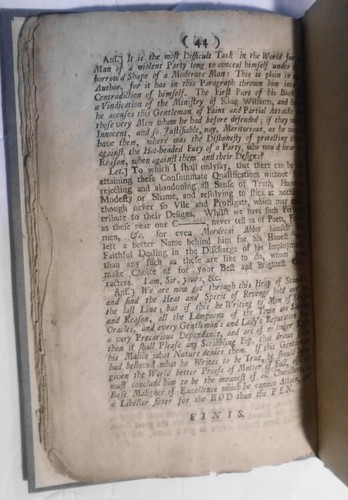 ( 44 )
Ans.) It is the most Difficult Task in the World for
Man of a violent Party long to conceal himself under
borrow'd Shape of a Moderate Man: This is plain in
Author, for it has in this Paragraph thrown him into
Contradiction of himself. The First Part of his Book
a Vindication of the Ministry of King William, and
he accuses this Gentleman of Faint and Partial
those very Men whom he had before defended, if they
Innocent, and so Justifiable, nay, Meritorious, as he
have them, where was the Dishonesty of protecting
against the Hot-headed Fury of a Party, who wou'd hear
Reason, when against them and their Designs?
Let.) To which I shall only say, that there can be
attaining these Consummate Qualifications without
rejecting, and abandoning all Sense of Truth, Honour
Modesty or Shame, and resolving to stick at nothing
though never so Vile and Profligate, which may
tribute to their Designs. Whilst we have such
as these near our C—— never tell us of Poets,
men, &c. for even Mordecai Abbot himself
left a better Name behind him for his House
Faithful Dealing in the Discharge of his Imployment
than any such as these are like to do, whom
make Choice of for your Best and Brightest
racters. I am, Sir, yours, &c.
Ans.) We are now got through this Heap of
and find the Heat and Spirit of Revenge
the last Line; but if this be Writing
and Reason, all the Lampoons of the Town are
Oracles, and every Gentleman's and Lady's Reputation
a very Precarious Dependence, and are of no longer
than it shall Please any Scribling Esq;
his Malice what Nature denies them. If this Gentleman
had believed what he Writes to be True, he
given the World better Proofs of Matter of Fact,
must conclude him to be the meanest of
Base Malignes of Excellence which he cannot Attain,
a Libeller fitter for the ROD than the PEN.
FINIS.